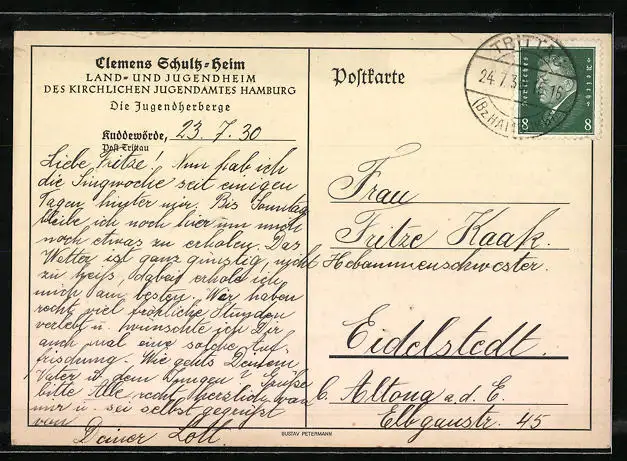 Clemens Schultz-Heim
LAND- UND JUGENDHEIM
DES KIRCHLICHEN JUGENDAMTES HAMBURG
Die Jugendherberge
Kuddewörde, 23. 7. 30
Post Trittau
Liebe Fritze! Nun hab ich
die Singwoche seit einigen
Tagen hinter mir. Bis Sonntag
bleibe ich noch hier um mich
noch etwas zu erholen. Das
Wetter ist ganz günstig, nicht
zu heiß, dabei erhole ich
mich am besten. Wir haben
recht viel fröhliche Stunden
verlebt u. wünschte ich Dir
auch mal eine solche Auf-
frischung. Wie gehts Deinem
Vater u. dem Jungen? Grüße
bitte Alle recht herzlich von
mir u. sei selbst gegrüßt
von
Deiner Lott.
Postkarte
TRITTAU
24.7.3
8 8
Frau
Fritze Kaak.
Hebammenschwester.
Eidelstedt.
b. Altona a.d. E.
Elbgaustr. 45
GUSTAV PETERMANN